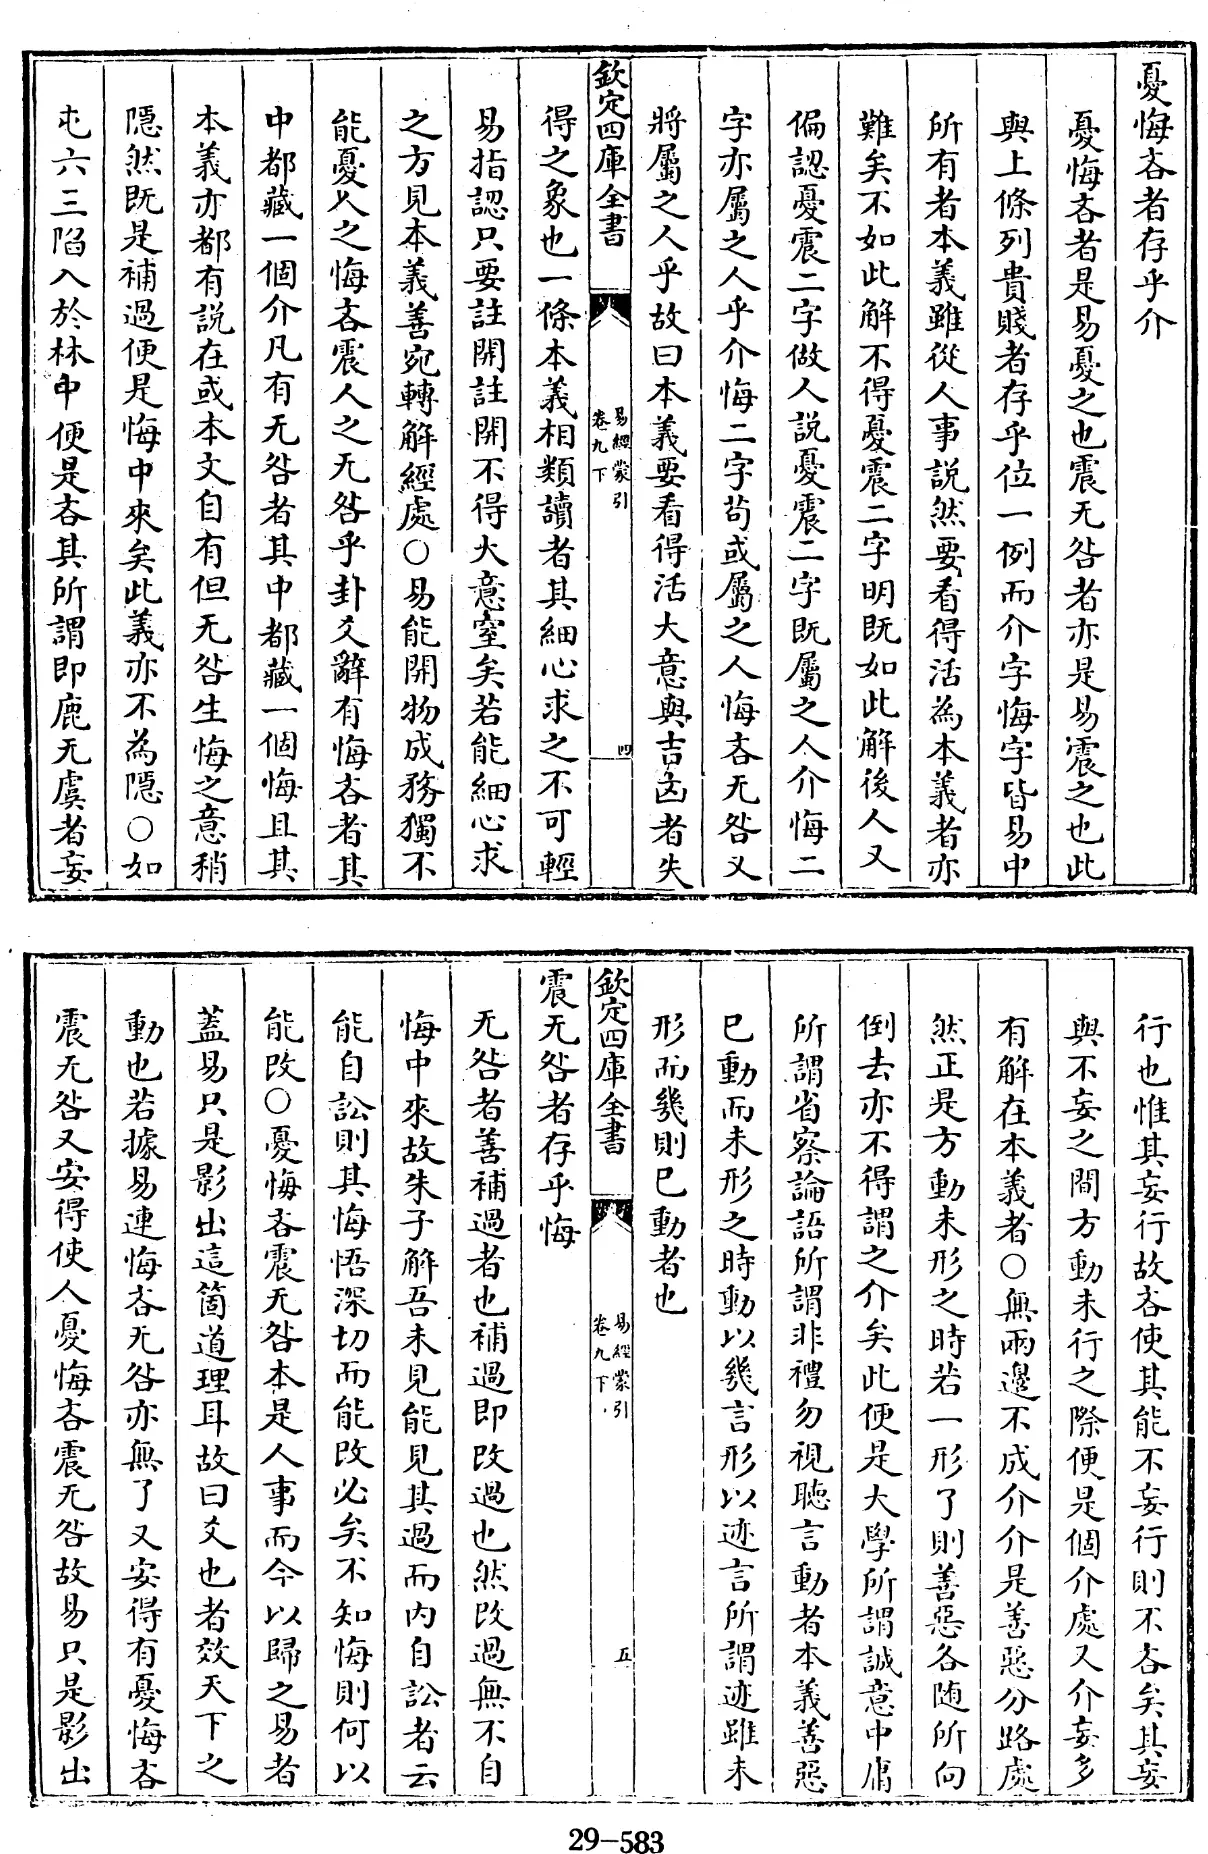 憂悔吝者存乎介
憂悔吝者是易憂之也震无咎者亦是易震之也此
與上條列貴賤者存乎位一例而介字悔字皆易中
所有者本義雖從人事説然要看得活為本義者亦
難矣不如此解不得憂震二字明既如此解後人又
偏認憂震二字做人説憂震二字既屬之人介悔二
字亦屬之人乎介悔二字苟或屬之人悔吝无咎又
將屬之人乎故曰本義要看得活大意與吉凶者失
欽定四庫全書
易經蒙引
卷九下
四
得之象也一條本義相類讀者其細心求之不可輕
易指認只要註開註開不得大意窒矣若能細心求
之方見本義善宛轉解經處○易能開物成務獨不
能憂人之悔吝震人之无咎乎卦爻辭有悔吝者其
中都藏一個介凡有无咎者其中都藏一個悔且其
本義亦都有説在或本文自有但无咎生悔之意稍
隱然既是補過便是悔中來矣此義亦不為隱○如
屯六三陷入於林中便是吝其所謂即鹿无虞者妄
行也惟其妄行故吝使其能不妄行則不吝矣其妄
與不妄之間方動未行之際便是個介處又介妄多
有解在本義者○無兩邊不成介介是善惡分路處
然正是方動未形之時若一形了則善惡各随所向
倒去亦不得謂之介矣此便是大學所謂誠意中庸
所謂省察論語所謂非禮勿視聽言動者本義善惡
已動而未形之時動以幾言形以迹言所謂迹雖未
形而幾則已動者也
欽定四庫全書
易經蒙引
卷九下
五
震无咎者存乎悔
无咎者善補過者也補過即改過也然改過無不自
悔中來故朱子解吾未見能見其過而内自訟者云
能自訟則其悔悟深切而能改必矣不知悔則何以
能改○憂悔吝震无咎本是人事而今以歸之易者
蓋易只是影出這箇道理耳故曰爻也者效天下之
動也若據易連悔吝无咎亦無了又安得有憂悔吝
震无咎又安得使人憂悔吝震无咎故易只是影出
29-583